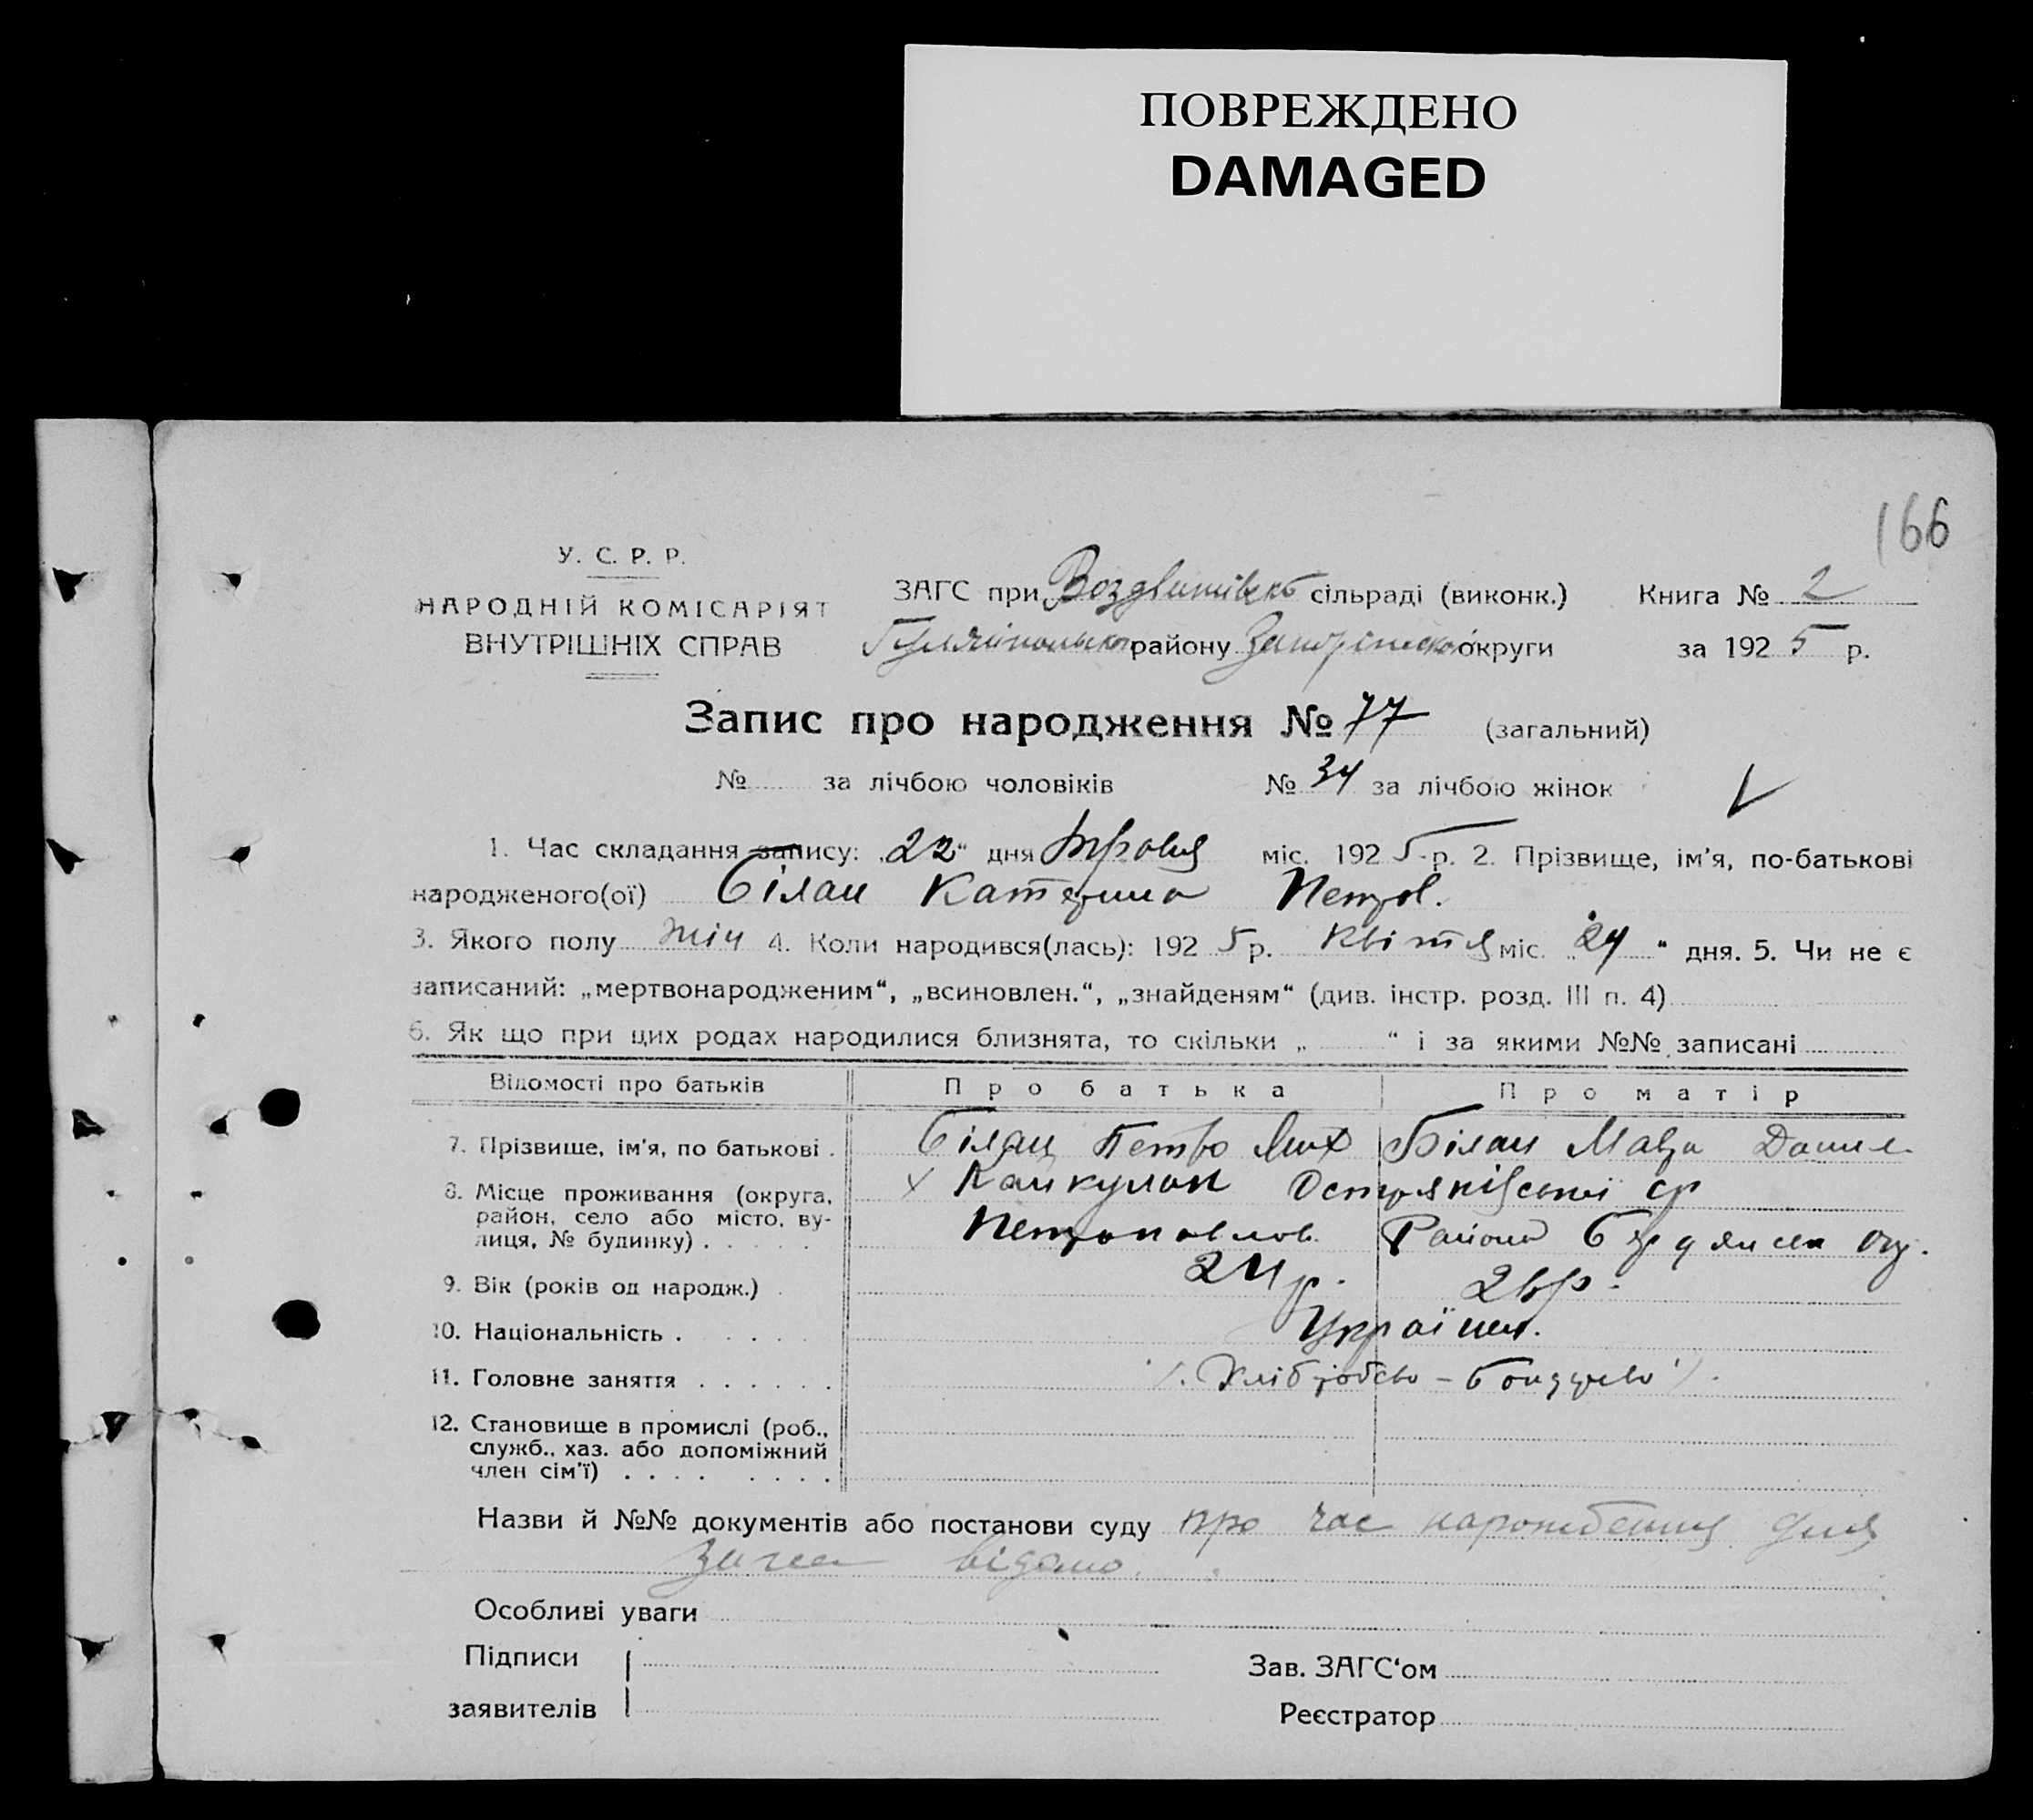 ПОВРЕЖДЕНО
DAMAGED
166
У. С. Р. Р.
НАРОДНІЙ КОМІСАРІЯТ
ВНУТРІШНІХ СПРАВ
ЗАГС при Воздвижівск сільраді (виконк.) Книга № 2
району округи за 1925 р.
Запис про народження № 77 (загальний)
№ за лічбою чоловіків № 34 за лічбою жінок V
1. Час складання запису: „22“ дня травня міс. 1925 р. 2. Прізвище, ім'я, по-батькові
народженого(ої) Білан Катерина Петров.
3. Якого полу жін 4. Коли народився(лась): 1925 р. квітня міс. „24“ дня. 5. Чи не є
записаний: „мертвонародженим“, „всиновлен.“, „знайденям“ (див. інстр. розд. III п. 4)
6. Як що при цих родах народилися близнята, то скільки „ “ і за якими №№ записані
Відомості про батьків Про батька Про матір
7. Прізвище, ім'я, по батькові . Білан Петро Мих Білан Марія Данил.
8. Місце проживання (округа,
район, село або місто, ву-
лиця, № будинку) . . . . .
х Канкулак ср
Петропавлов. Району Бердянск Окр.
9. Вік (років од народж.) . 24 р. 26 р.
10. Національність . . . . . . Україн.
11. Головне заняття . . . . . . Хлібробство -
12. Становище в промислі (роб.,
служб., хаз. або допоміжний
член сім'ї) . . . . . . . .
Назви й №№ документів або постанови суду про час народження для
відано.
Особливі уваги
Підписи
заявителів
Зав. ЗАГС'ом
Реєстратор